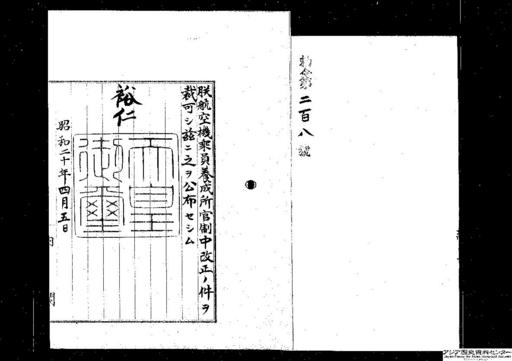 勅令第二百八號
朕航空機乗員養成所官制中改正ノ件ヲ
裁可シ茲ニ之ヲ公布セシム
裕仁
天皇
御璽
昭和二十年四月五日
内閣
アジア歴史資料センター